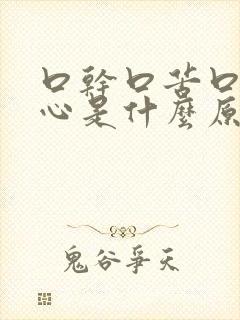 口幹口苦口
心是什麼原
鬼谷爭天